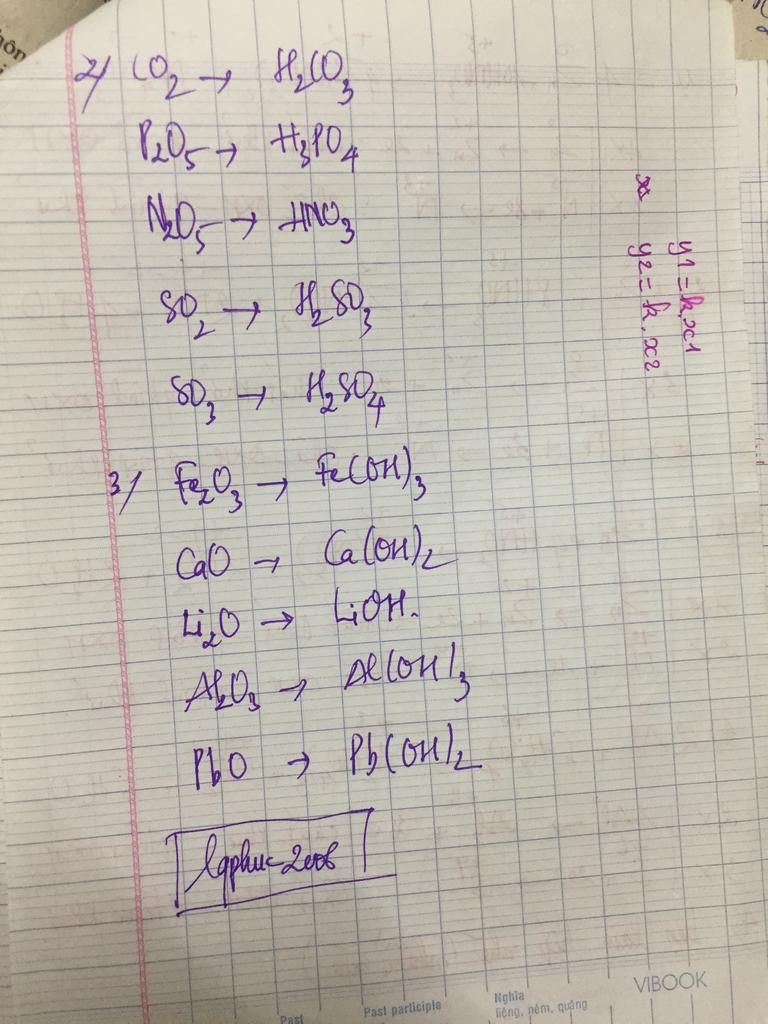 2/ CO2 → H2CO3
P2O5 → H3PO4
N2O5 → HNO3
SO2 → H2SO3
SO3 → H2SO4
3/ Fe2O3 → Fe(OH)3
CaO → Ca(OH)2
Li2O → LiOH.
Al2O3 → Al(OH)3
PbO → Pb(OH)2
y1 = k.x1
y2 = k.x2
VIBOOK
Past
Past participle
Nghĩa
liệng, ném, quăng